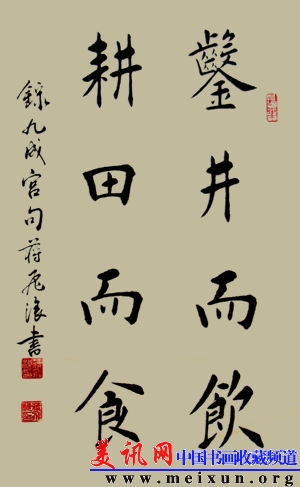 鑿井而飲
耕田而食
錄九成宮句蔣飛滾書
美讯网中国书画收藏频道
www.meixun.org